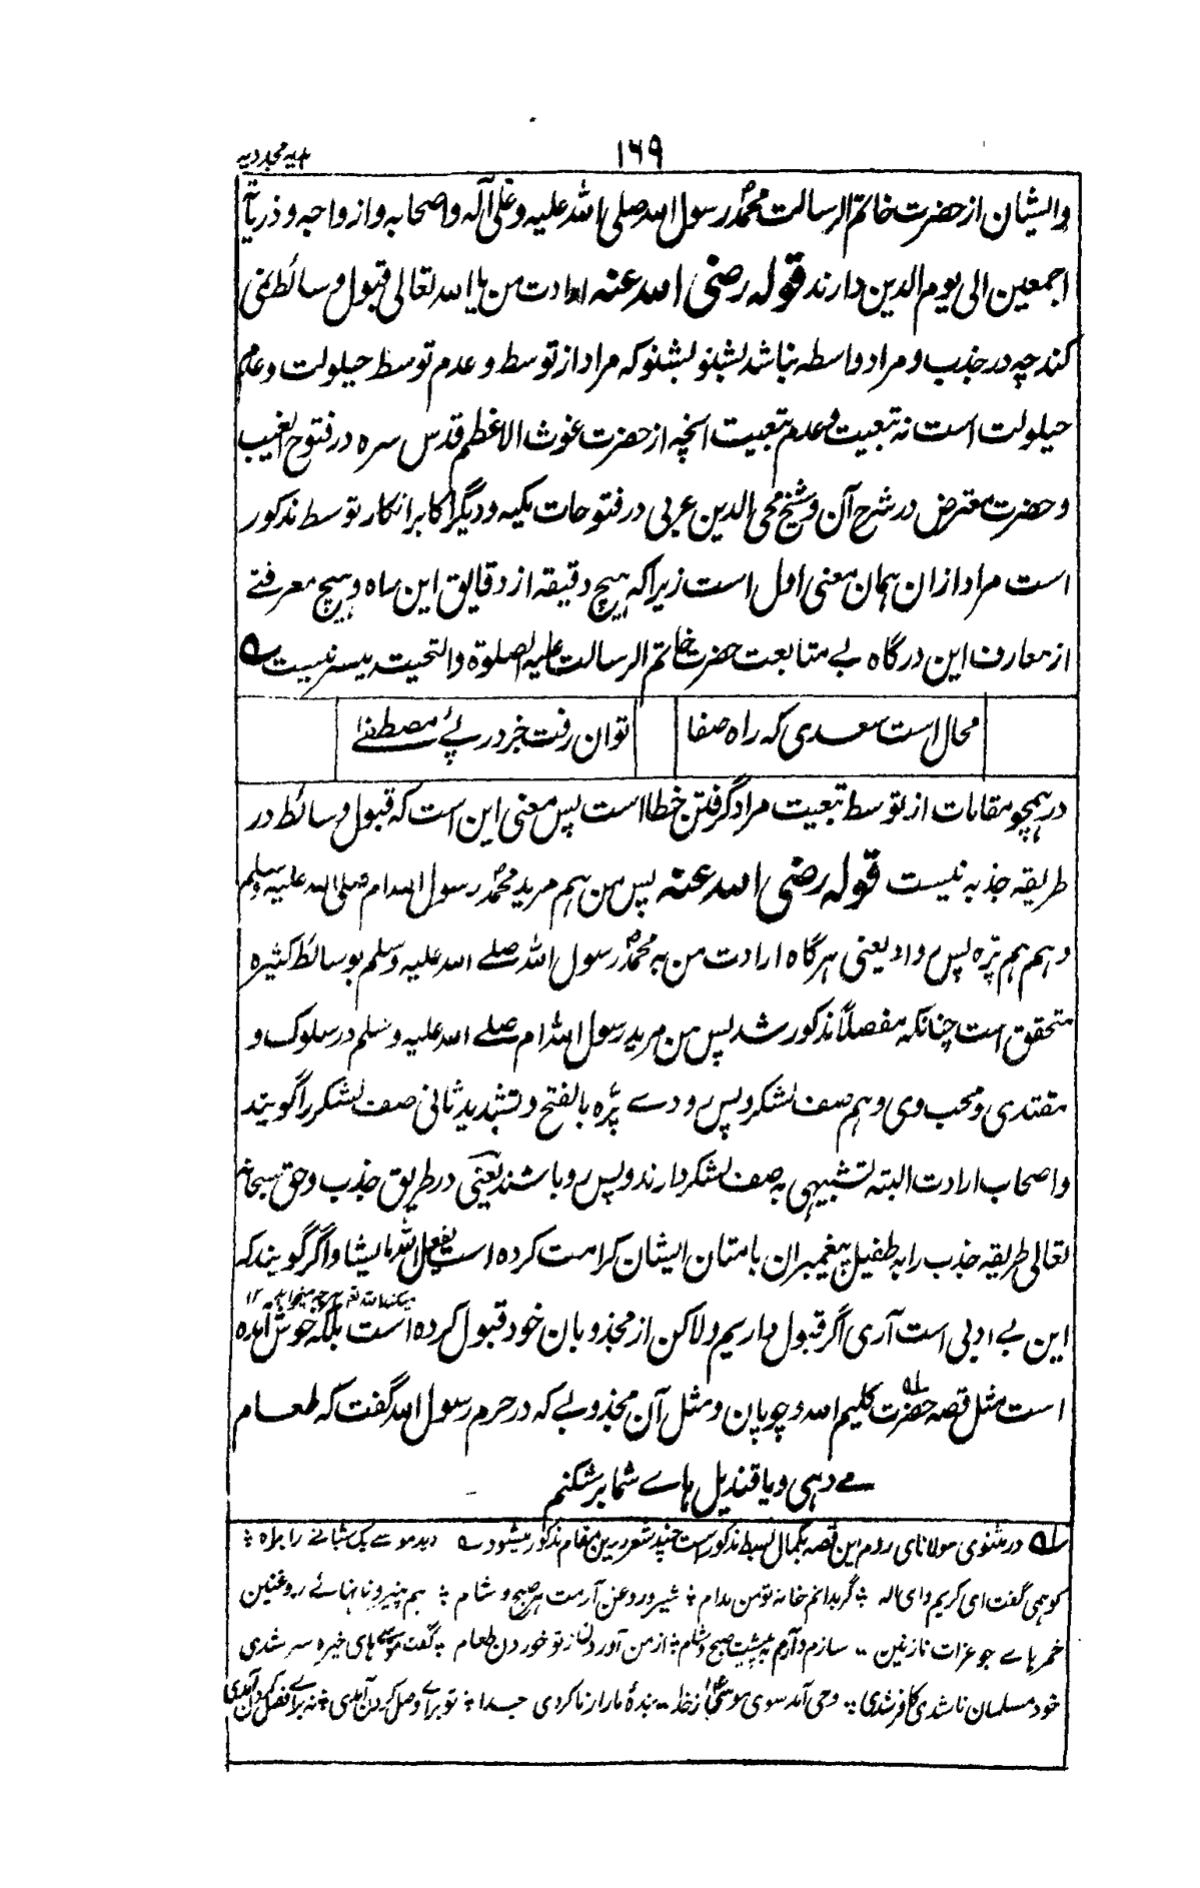 ۱۶۹
ہدیہ مجددیہ
وایشان از حضرت خاتم الرسالت محمد رسول اللہ صلی اللہ علیہ وعلی آلہ واصحابہ وازواجہ وذریاتہ
اجمعین الی یوم الدین دارند قولہ رضی اللہ عنہ ارادت من باللہ تعالی قبول وسائط نمی
کند چہ در جذب و مراد واسطہ نباشد بشنو بشنو کہ مراد از توسط و عدم توسط حیلولت وعدم
حیلولت است نہ تبعیت وعدم تبعیت آنچہ از حضرت غوث الاعظم قدس سرہ در فتوح الغیب
وحضرت معترض در شرح آن وشیخ محی الدین عربی در فتوحات مکیہ ودیگر اکابر انکار توسط مذکور
است مراد ازان ہمان معنی اول است زیرا کہ ہیچ دقیقہ از دقایق این راہ وہیچ معرفتے
از معارف این درگاہ بے متابعت حضرت خاتم الرسالت علیہ الصلوۃ والتحیت میسر نیست ؎
محال است سعدی کہ راہ صفا
توان رفت جز در پئے مصطفےٰ
در ہمچو مقامات از توسط تبعیت مراد گرفتن خطا است پس معنی این است کہ قبول وسائط در
طریقہ جذبہ نیست قولہ رضی اللہ عنہ پس من ہم مرید محمد رسول اللہ ام صلی اللہ علیہ وسلم
وہم ہم پرہ پس رو او یعنی ہرگاہ ارادت من بہ محمد رسول اللہ صلے اللہ علیہ وسلم بوسائط کثیرہ
متحقق است چنانکہ مفصلاً مذکور شد پس من مرید رسول اللہ ام صلے اللہ علیہ وسلم در سلوک و
مقتدی ومحب وی وہم صف لشکر و پس رو وے پرّہ بالفتح وتشدید ثانی صف لشکر را گویند
واصحاب ارادت البتہ تشبیہی بہ صف لشکر دارند وپس رو باشند یعنی در طریق جذب وحق سبحانہ
تعالی طریقہ جذب را بہ طفیل پیغمبران بامتان ایشان کرامت کردہ است یفعل اللہ ما یشاء واگر گویند کہ
میکند اللہ تعالی ہرچہ میخواہد ۱۲
این بے ادبی است آری اگر قبول داریم ولاکن از مجذوبان خود قبول کردہ است بلکہ خوش آمدہ
است مثل قصہ حضرت کلیم اللہ وچوپان ومثل آن مجذوبے کہ در حرم رسول اللہ گفت کہ طعام
مے دہی ویا قندیل ہائے شما بر شکنم
لہ در مثنوی مولانای روم این قصہ بکمال بسط مذکور است چند شعر درین مقام مذکور میشود ؎ دید موسے یک شبانے را براہ ؞
کو ہمی گفت ای کریم وای الہ ؞ گر بدانم خانہ تو من مدام ؞ شیر و روغن آرمت ہر صبح وشام ؞ ہم پنیر ونانہائے روغنین
خمرہائے جوغرات نازنین ؞ سازم وآرم بہ پیشت صبح وشام ؞ از من آوردن ز تو خوردن طعام ؞ گفت موسے ہای خیرہ سر شدی
خود مسلمان ناشدی کافر شدی ؞ وحی آمد سوی موسی از خدا ؞ بندۂ ما را ز ما کردی جدا ؞ تو برائے وصل کردن آمدی ؞ نہ برائے فصل کردن آمدی